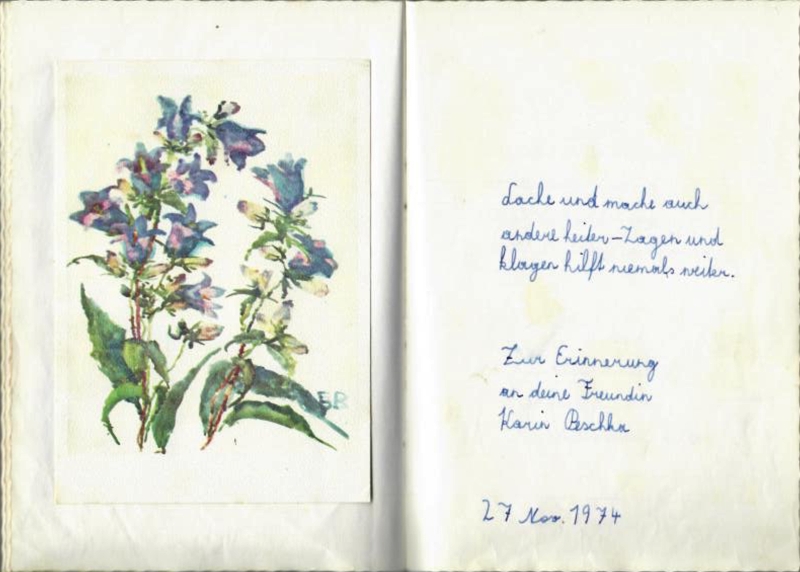 BB
Lache und mache auch
andere heiter - Zagen und
klagen hilft niemals weiter.
Zur Erinnerung
an deine Freundin
Karin Peschka
27 Nov. 1974